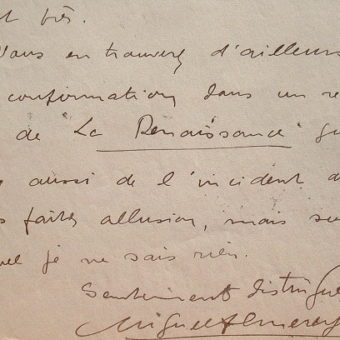 t très.
Vous en trouverez d'ailleurs
confirmation dans un re
de "La Renaissance" qu
aussi de l'incident a
s faites allusion, mais su
uel je ne sais rien.
Sentiments distingué
Miguel Almereyd